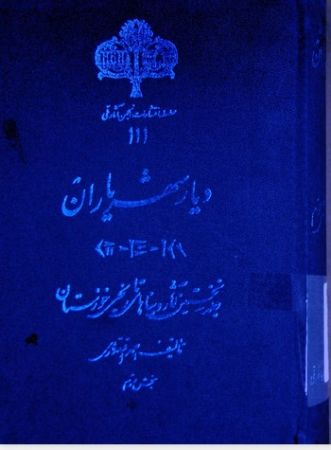 سلسله انتشارات انجمن آثار ملی
۱۱۱
دیار شهریاران
جلد نخستین آثار و بناهای تاریخی خوزستان
تألیف احمد اقتداری
بخش دوم